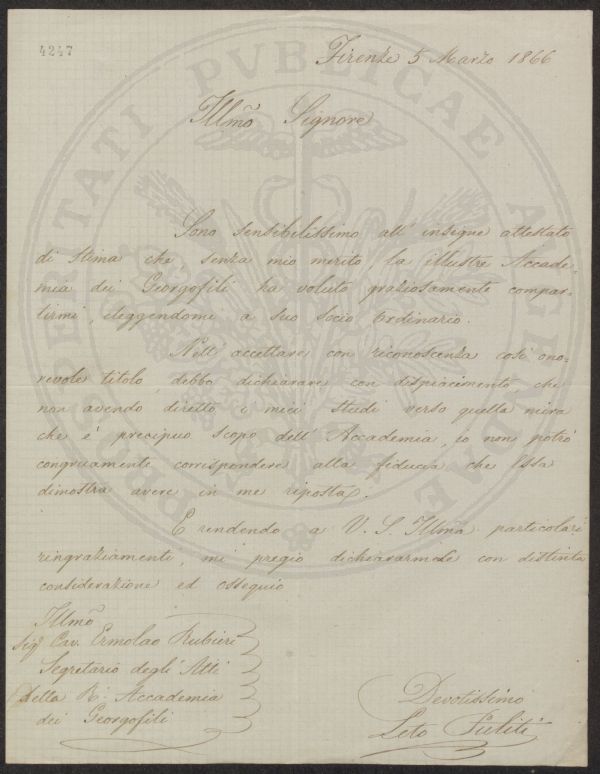 4247
Firenze 5 Marzo 1866
Illmo Signore
Sono sensibilissimo all' insigne attestato
di stima che senza mio merito, la illustre Accade-
mia dei Georgofili ha voluto graziosamente compar-
tirmi, eleggendomi a suo Socio Ordinario.
Nell' accettare con riconoscenza così ono-
revole titolo, debbo dichiarare con dispiacimento che
non avendo diretto i miei studi verso quella mira
che è precipuo scopo dell' Accademia, io non potrò
congruamente corrispondere alla fiducia che Essa
dimostra avere in me riposta.
E rendendo a V. S. Illma particolari
ringraziamenti, mi pregio dichiararmele con distinta
considerazione ed ossequio
Illmo
Sigr Cav. Ermolao Rubieri
Segretario degli Atti
Della R. Accademia
dei Georgofili
Devotissimo
Leto
PROSPERITATI PVBLICAE AVGENDAE